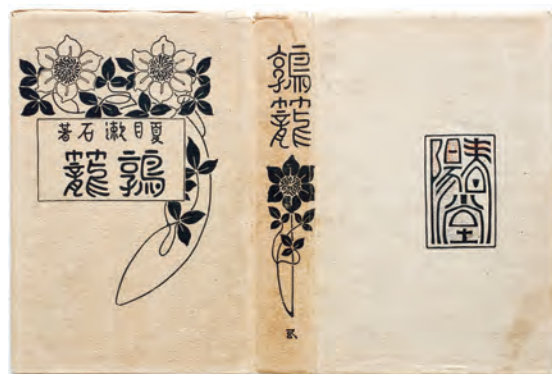 夏目漱石著
鶉籠
鶉籠
春陽堂